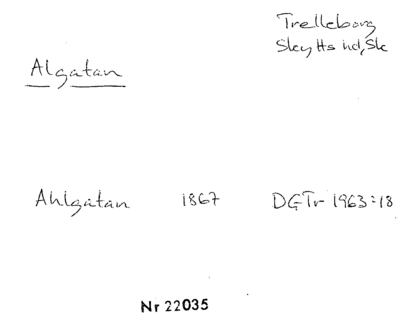 Trelleborg
Skytts hd, Sk
Algatan
Ahlgatan 1867 DGTr 1963:18
Nr 22035